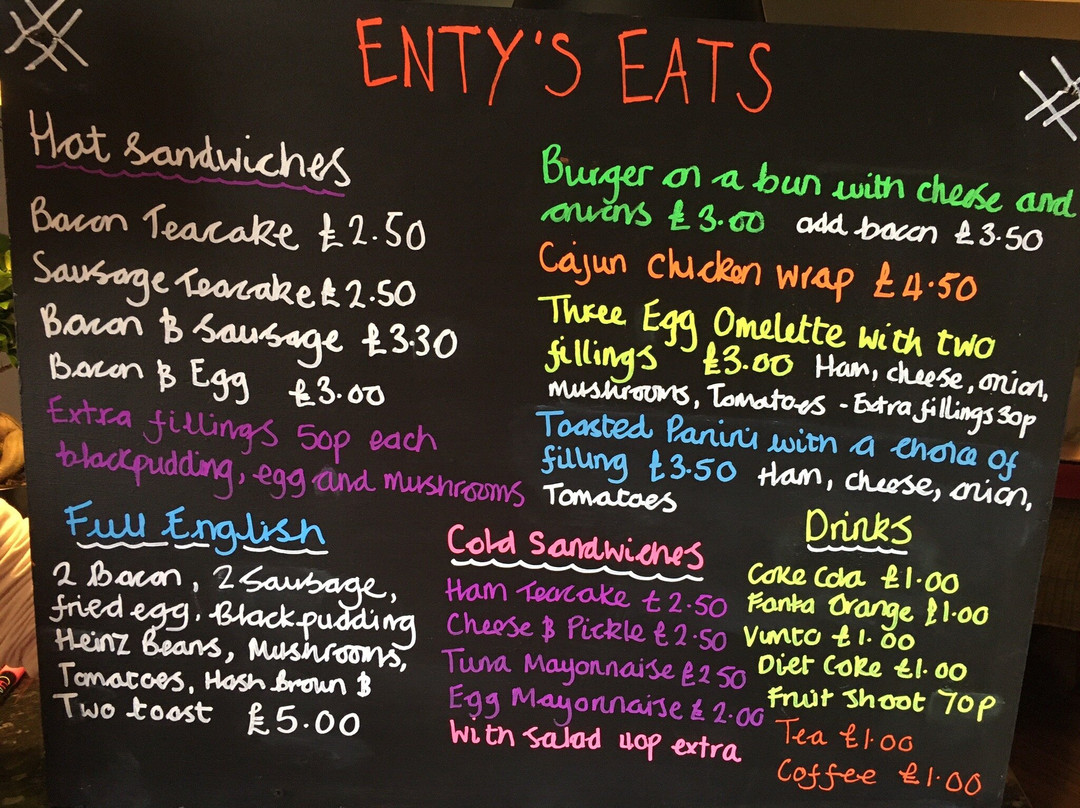 ENTY'S EATS
Hot Sandwiches
Bacon Teacake £2.50
Sausage Teacake £2.50
Bacon & Sausage £3.30
Bacon & Egg £3.00
Extra fillings 50p each
blackpudding, egg and mushrooms
Burger on a bun with cheese and
onions £3.00 add bacon £3.50
Cajun chicken wrap £4.50
Three Egg Omelette with two
fillings £3.00 Ham, cheese, onion,
mushrooms, Tomatoes - Extra fillings 30p
Toasted Panini with a choice of
filling £3.50 Ham, cheese, onion,
Tomatoes
Full English
2 Bacon, 2 Sausage,
fried egg, Black pudding
Heinz Beans, Mushrooms,
Tomatoes, Hash brown &
Two toast £5.00
Cold Sandwiches
Ham Teacake £2.50
Cheese & Pickle £2.50
Tuna Mayonnaise £2.50
Egg Mayonnaise £2.00
With Salad 40p extra
Drinks
Coke Cola £1.00
Fanta Orange £1.00
Vimto £1.00
Diet Coke £1.00
Fruit Shoot 70p
Tea £1.00
Coffee £1.00